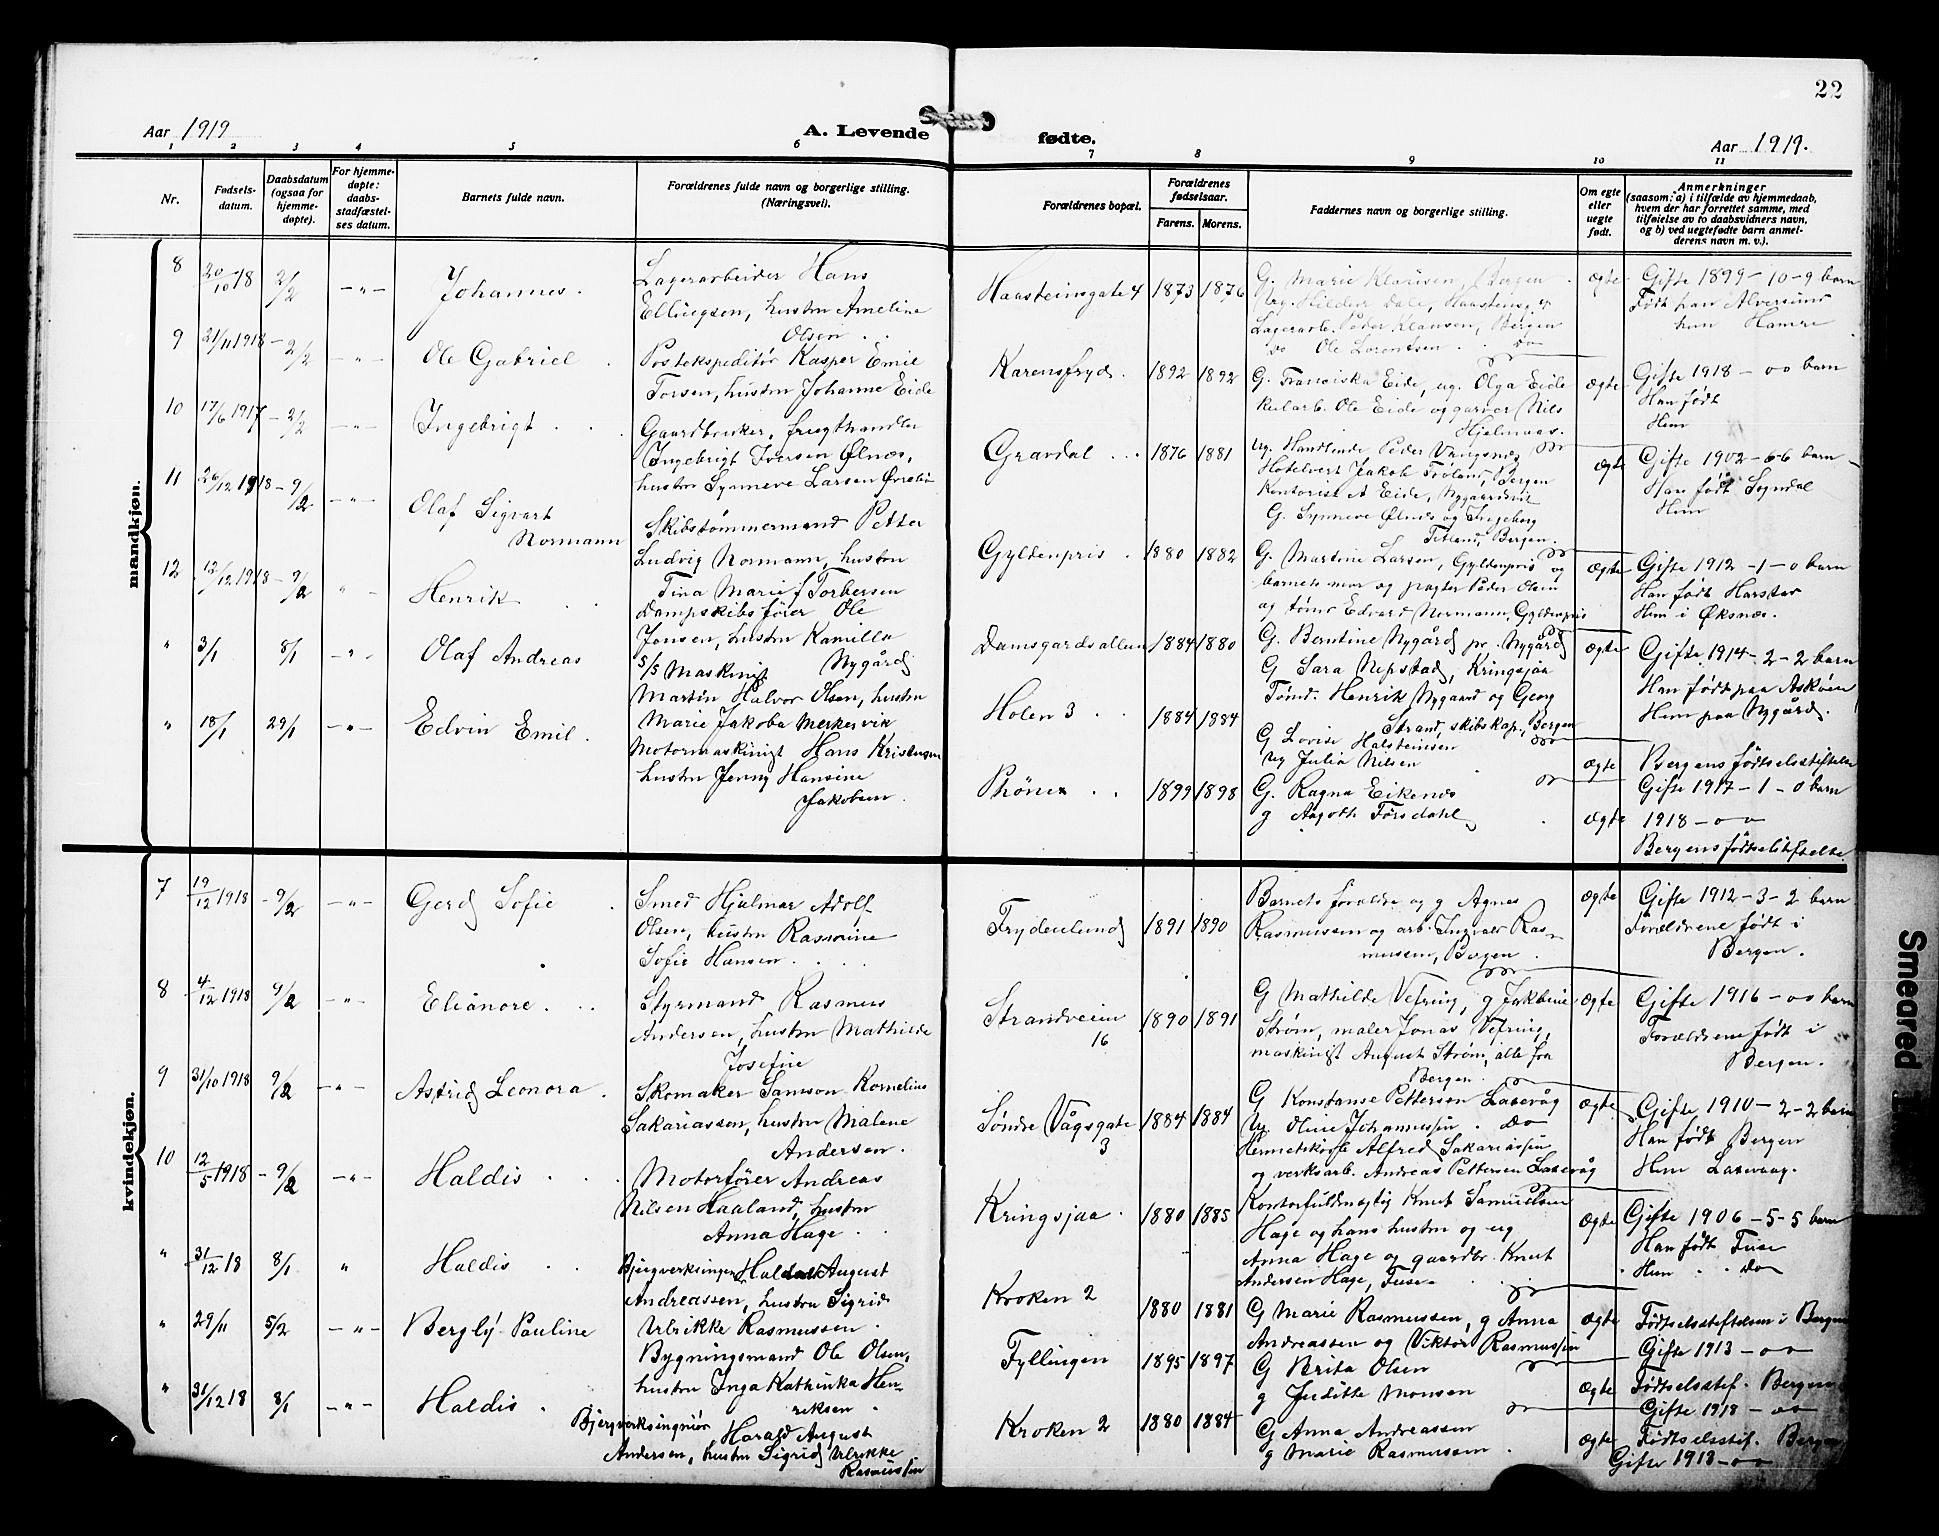 22
Aar 1919
A. Levende
fødte.
Aar 1919.
1 2 3 4 5 6 7 8 9 10 11
Nr.
Fødsels-
datum.
Daabsdatum
(ogsaa for
hjemme-
døpte).
For hjemme-
døpte:
daabs-
stadfæstel-
ses datum.
Barnets fulde navn.
Forældrenes fulde navn og borgerlige stilling.
(Næringsvei).
Forældrenes bopæl.
Forældrenes
fødselsaar.
Farens. Morens.
Faddernes navn og borgerlige stilling.
Om egte
eller
uegte
født.
Anmerkninger
(saasom: a) i tilfælde av hjemmedaab,
hvem der har forrettet samme, med
tilføielse av to daabsvidners navn,
og b) ved uegtefødte barn anmel-
derens navn m. v.).
mandkjøn.
8 20/10 18 2/2 -"- Johannes.
Lagerarbeider Hans
Ellingsen, hustru Ameline
Olsen
Haasteinsgate 4 1873 1876
G. Marie Klausen, Bergen
Ug. Hildur Dale, Haasteinsg. 4
Lagerarb. Peder Klausen, Bergen
do Ole Lorentsen do
Ægte
Gifte 1899 - 10 - 9 barn
Født han Alversund
hun Hamre
9 21/11 1918 - 2/2 -"- Ole Gabriel
Postekspeditør Kasper Emil
Torsen, hustru Johanne Eide
Karensfryd. 1892 1892
G. Franciska Eide, ug. Olga Eide
Ole Eide og garver Nils
Hjelmaas.
Ægte
Gifte 1918 - oo barn
Han født
Hun
10 17/6 1917 - 2/2 -"- Ingebrigt
Gaardbruker, frugthandler
Ingebrigt Iversen Ølnes,
hustru Synneve Larsen
Gravdal 1876 1881
Ug. Handlende Peder Vangsnes
Hotelvert Jakob Frøland, Bergen
Kontorist A Eide, Nygaardsvei
G. Synneve Ølnes og Ingeborg
Titland, Bergen.
Ægte
Gifte 1902 - 6-6 barn
Han født Sogndal
Hun
11 26/12 1918 - 9/2 -"- Olaf Sigvart
Normann
Skibstømmermand Petter
Ludvig Normann, hustru
Tina Marie f Torbersen
Gyldenpris 1880 1882
G. Martine Larsen, Gyldenpris og
barnets mor og pagter Peder Olsen
og tømr Edvard Normann, Gyldenpris
Ægte
Gifte 1912 - 1 - 0 barn
Han født Harstad
Hun i Øksnes.
12 12/12 1918 - 9/2 " Henrik
Dampskibsfører Ole
Jonsen, hustru Kamilla
Nygård
Damsgardsalleen 1884 1880
G. Berntine Nygård pr. Nygård
G Sara Nepstad, Kringsjaa
Tømd. Henrik Nygaard og Georg
Strand, skibskap., Bergen
Ægte
Gifte 1914 - 2 - 2 barn
Han født paa Askøen
Hun paa Nygård.
" 3/1 8/1 -"- Olaf Andreas
S/S Maskinist
Martin Halvor Olsen, hustru
Marie Jakoba Merkesvik
Holen 3 1884 1884
G Lovise Halsteinsen
Ug Julia Nilsen
Ægte
Bergens fødselsstiftelse
Gifte 1917 - 1 - 0 barn
" 18/1 29/1 -"- Edvin Emil.
Motormaskinist Hans Kristensen
hustru Jenny Hansine
Jakobsen.
Phönix 1899 1898
G. Ragna Eikenes
g Aagoth Førsdahl
Ægte
1918 - oo
Bergens fødselsstiftelse
kvindekjøn.
7 19/12 1918 - 9/2 -"- Gerd Sofie
Smed Hjalmar Adolf
Olsen, hustru Rasmine
Sofie Hansen
Frydenlund 1891 1890
Barnets forældre og g Agnes
Rasmussen og arb. Ingvald Ras-
mussen, Bergen
Ægte
Gifte 1912 - 3 - 2 barn
Forældrene født i
Bergen.
8 4/12 1918 9/2 -"- Elianore.
Styrmand Rasmus
Andersen, hustru Mathilde
Josefine
Strandveien
16 1890 1891
G Mathilde Vefring, g Jakbine
Strøm, maler Jonas Vefring,
maskinist August Strøm, alle fra
Bergen.
Ægte
Gifte 1916 - oo barn
Forældrene født i
Bergen.
9 31/10 1918 9/2 -"- Astrid Leonora.
Skomaker Samson Kornelius
Sakariassen, hustru Malene
Andersen.
Søndre Vågsgate
3 1884 1884
G Konstanse Pettersen Laxevåg
Ug Oline Johannessen. Do
Alfred Sakariassen
og verksarb. Andreas Pettersen Laxevåg
Ægte
Gifte 1910 - 2 - 2 barn
Han født Bergen
Hun Laxevaag.
10 12/5 1918 - 9/2 -"- Haldis
Motorfører Andreas
Nilsen Haaland, hustru
Anna Hage
Kringsjaa 1880 1885
Kontorfuldmægtig Knut Samuelsen
Hage og hans hustru og ug
Anna Hage og gaardbr. Knut
Andersen Hage, Fuse
Ægte
Gifte 1906 - 5 - 5 barn
Han født Fuse
Hun Do
" 31/12 18 8/1 " Haldis
Bjergverksingen August
Andreassen, hustru Sigrid
Ulrikke Rasmussen.
Kroken 2 1880 1881
G Marie Rasmussen, g Anna
Andreassen og Viktor Rasmussen
Ægte
Fødselsstiftelsen i Bergen
Gifte 1913 - oo
" 29/11 5/2 -"- Bergly Pauline
Bygningsmand Ole Olsen,
hustru Inga Kathinka Hen-
riksen
Fyllingen 1895 1897
G Brita Olsen
g Juditte Monsen
Ægte
Fødselsstif. Bergen
Gifte 1918 - oo
" 31/12 18 8/1 -"- Haldis
Bjergverksingniør
Harald August
Andersen, hustru Sigrid Ulrikke
Rasmussen
Kroken 2 1880 1884
G Anna Andreassen
g Marie Rasmussen
Ægte
Fødselsstif. Bergen
Gifte 1913 - oo
Smeared